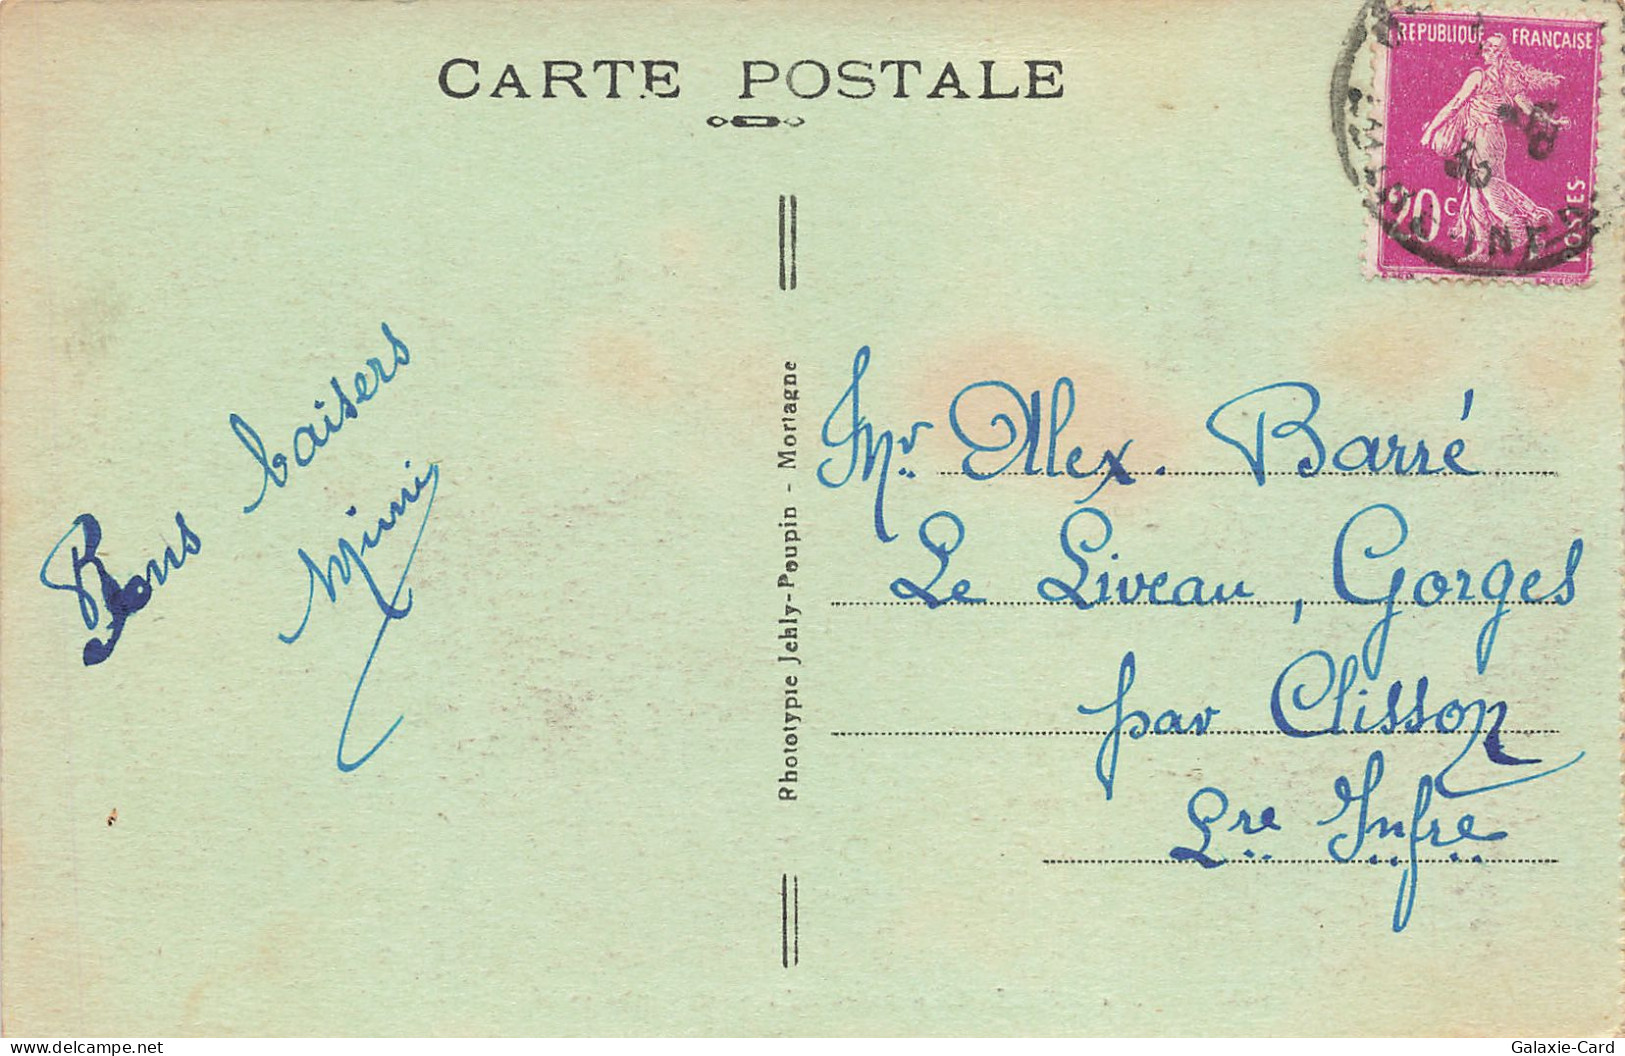 CARTE POSTALE
RÉPUBLIQUE FRANÇAISE
20c
POSTES
Bons baisers
Mimi
Phototypie Jehly-Poupin - Mortagne
Mr Alex. Barré
Le Liveau, Gorges
par Clisson
Lre Infre
delcampe.net
Galaxie-Card